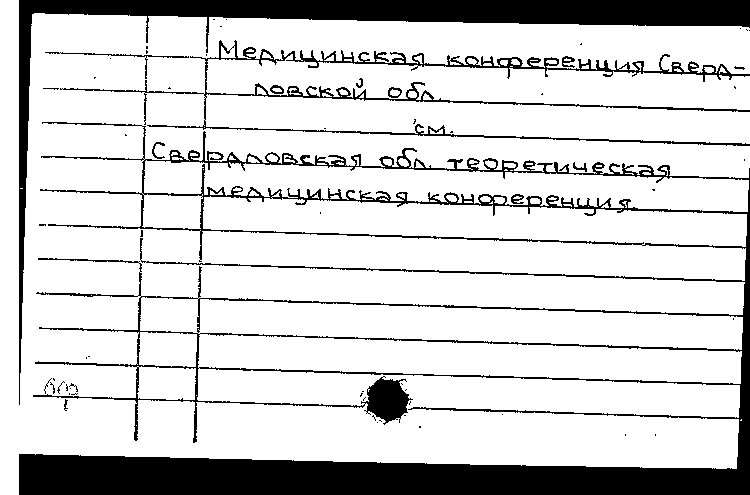 Медицинская конференция Сверд-
ловской обл.
см.
Свердловская обл. теоретическая
медицинская конференция.